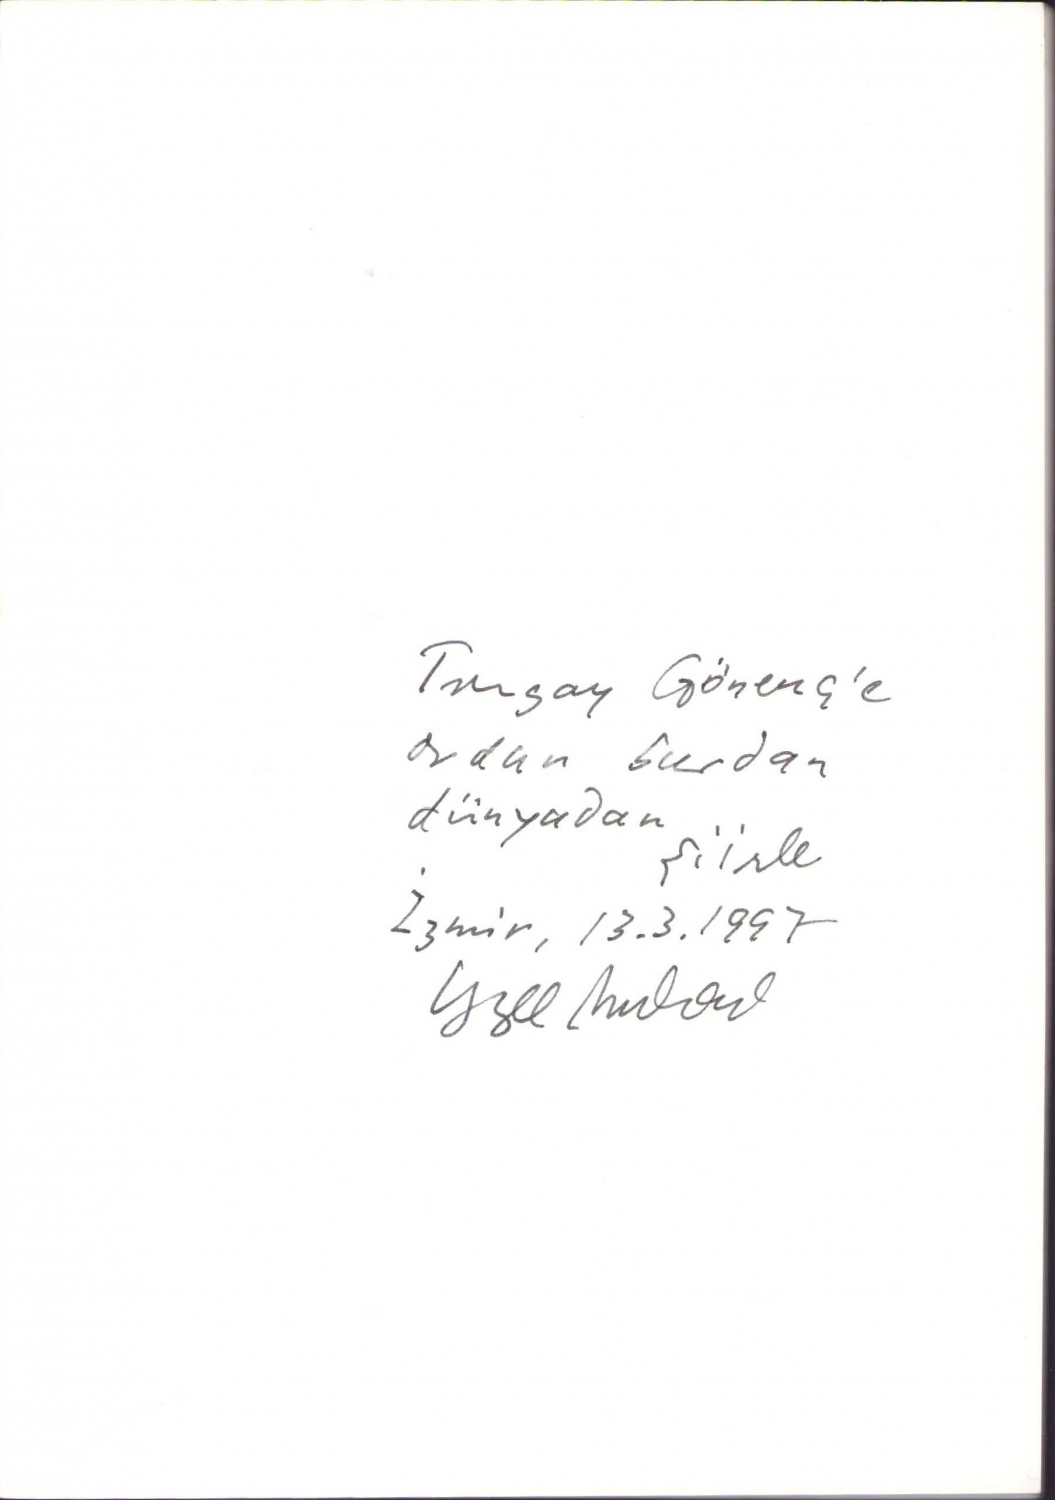 Turgay Gönenç'e
ordan burdan
dünyadan
şiirle
İzmir, 13.3.1997